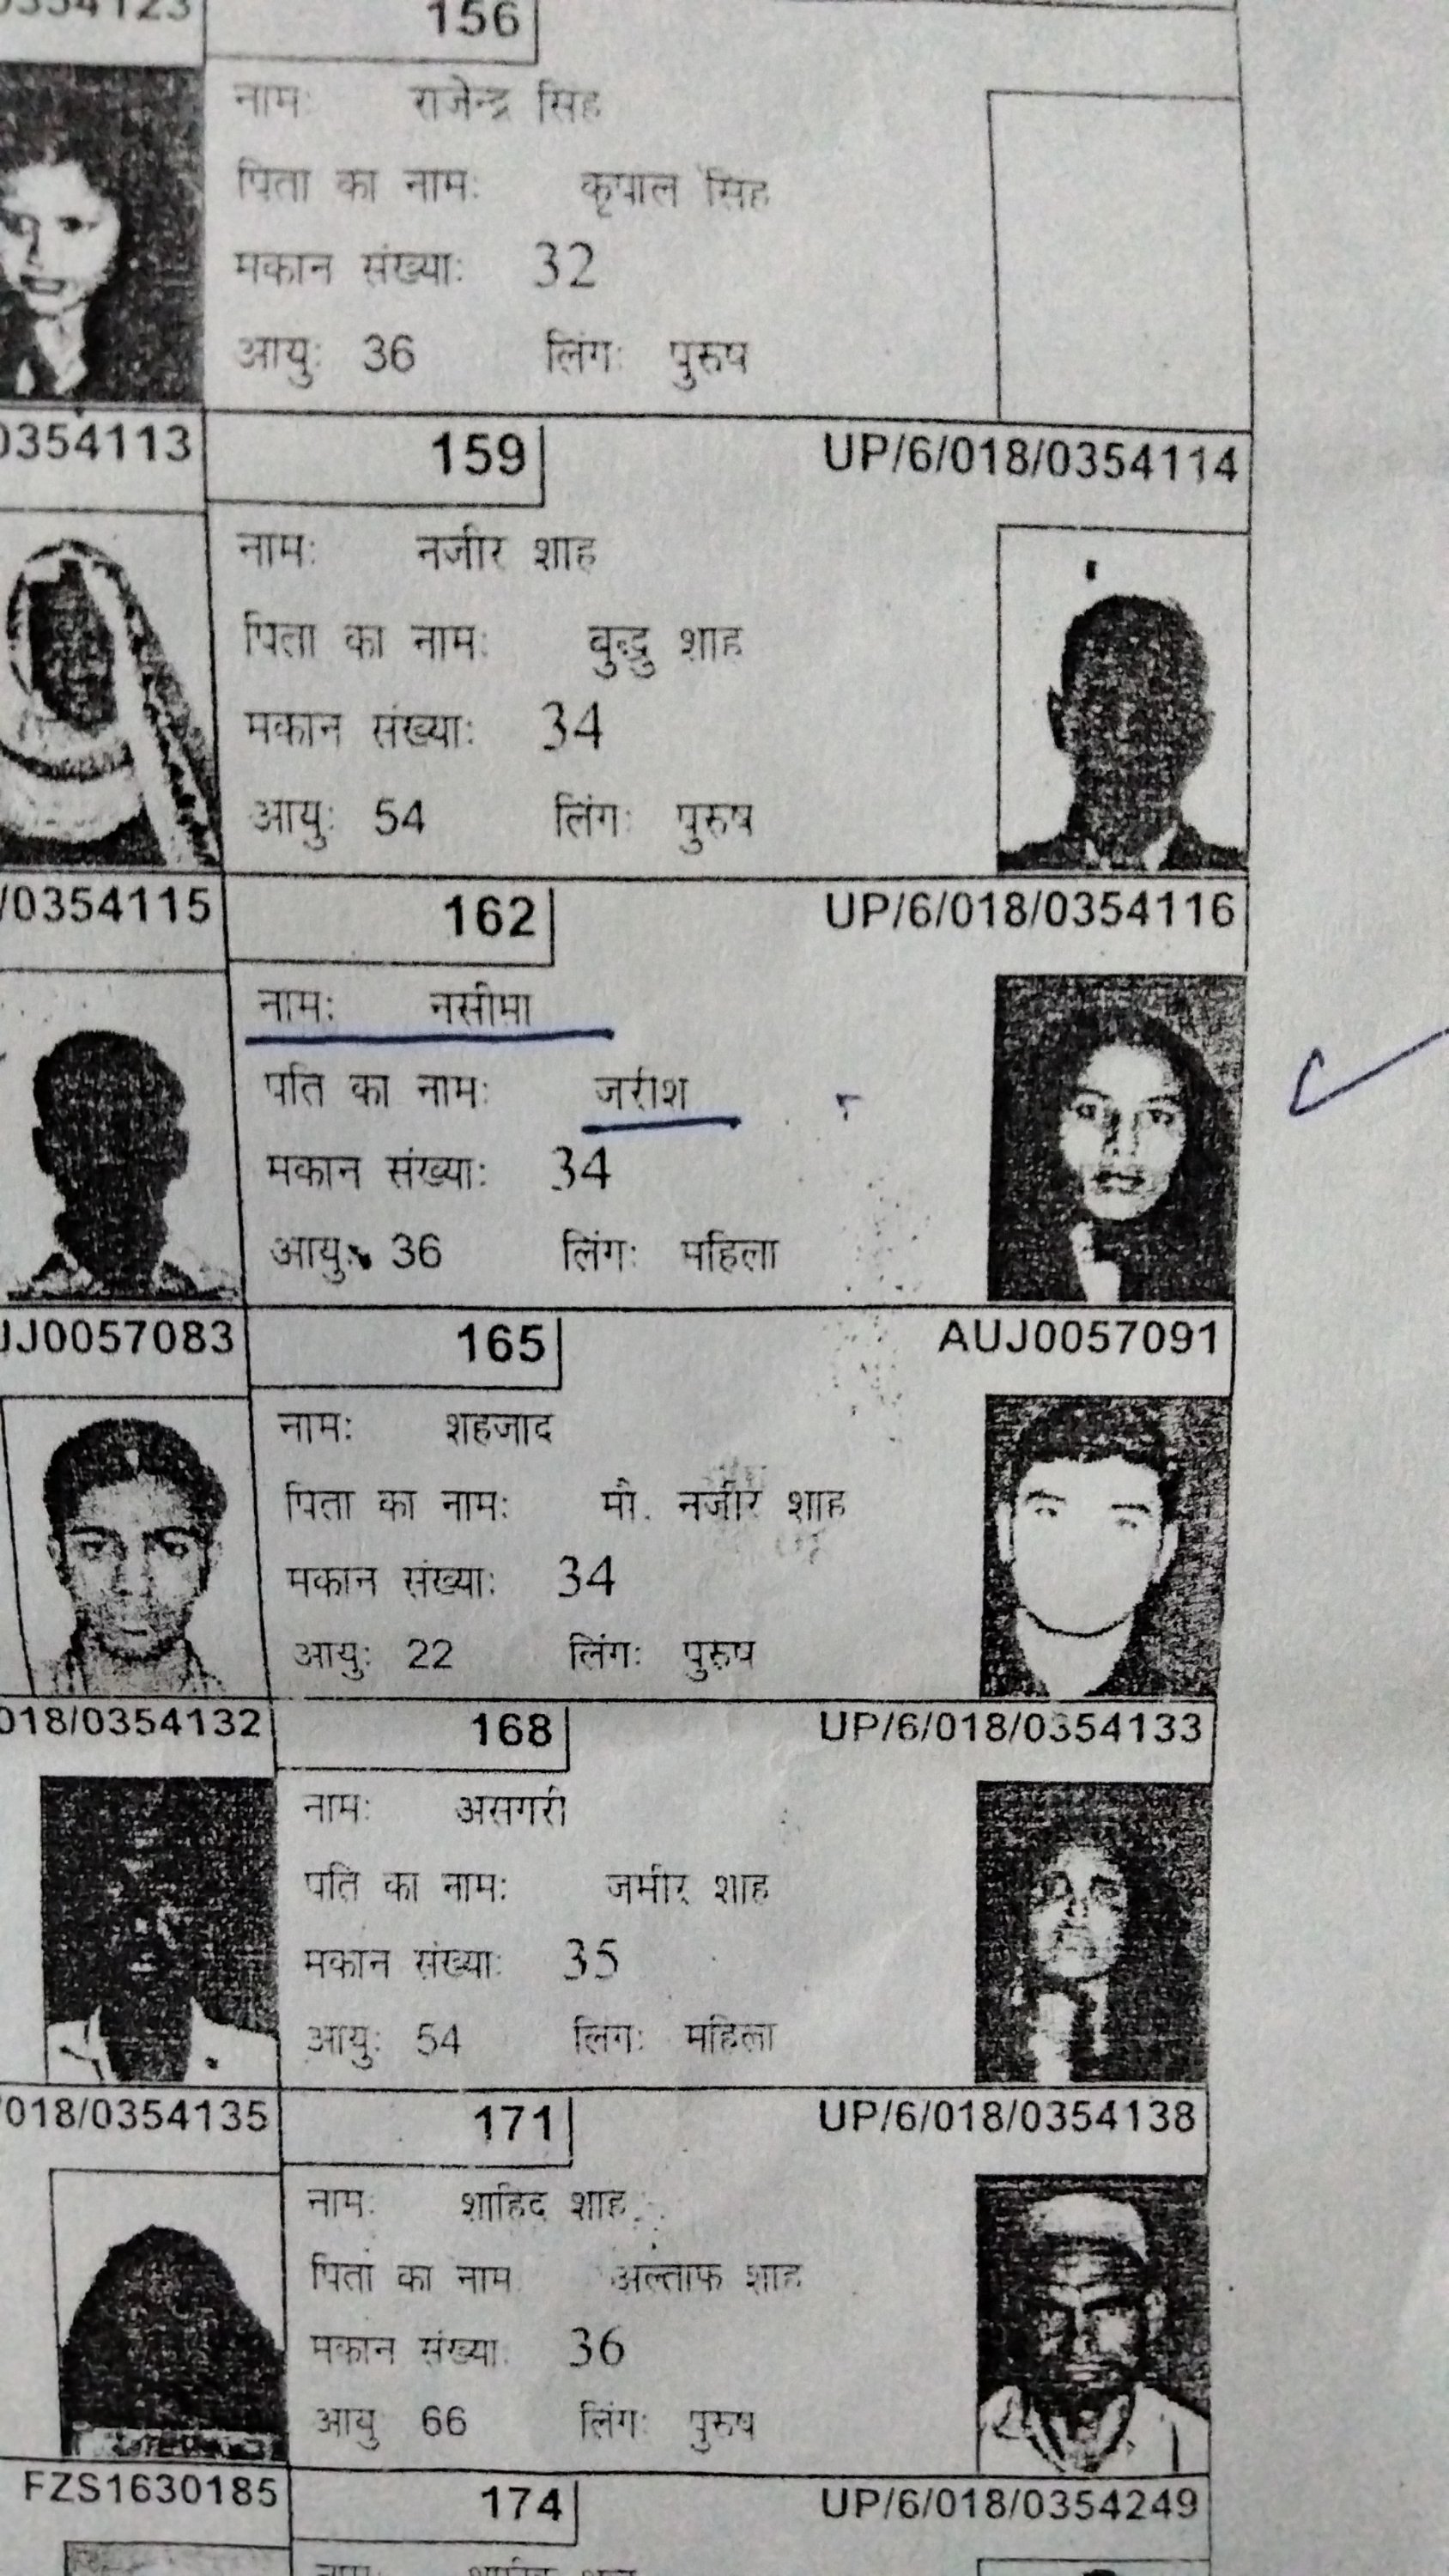 0354123 156
नामः राजेन्द्र सिंह
पिता का नामः कृपाल सिंह
मकान संख्याः 32
आयुः 36 लिंगः पुरुष
0354113 159 UP/6/018/0354114
नामः नजीर शाह
पिता का नामः बुद्धु शाह
मकान संख्याः 34
आयुः 54 लिंगः पुरुष
/0354115 162 UP/6/018/0354116
नामः नसीमा
पति का नामः जरीश
मकान संख्याः 34
आयुः 36 लिंगः महिला
UJ0057083 165 AUJ0057091
नामः शहजाद
पिता का नामः मौ. नजीर शाह
मकान संख्याः 34
आयुः 22 लिंगः पुरुष
018/0354132 168 UP/6/018/0354133
नामः असगरी
पति का नामः जमीर शाह
मकान संख्याः 35
आयुः 54 लिंगः महिला
/018/0354135 171 UP/6/018/0354138
नामः शाहिद शाह
पिता का नाम अल्ताफ शाह
मकान संख्याः 36
आयु 66 लिंगः पुरुष
FZS1630185 174 UP/6/018/0354249